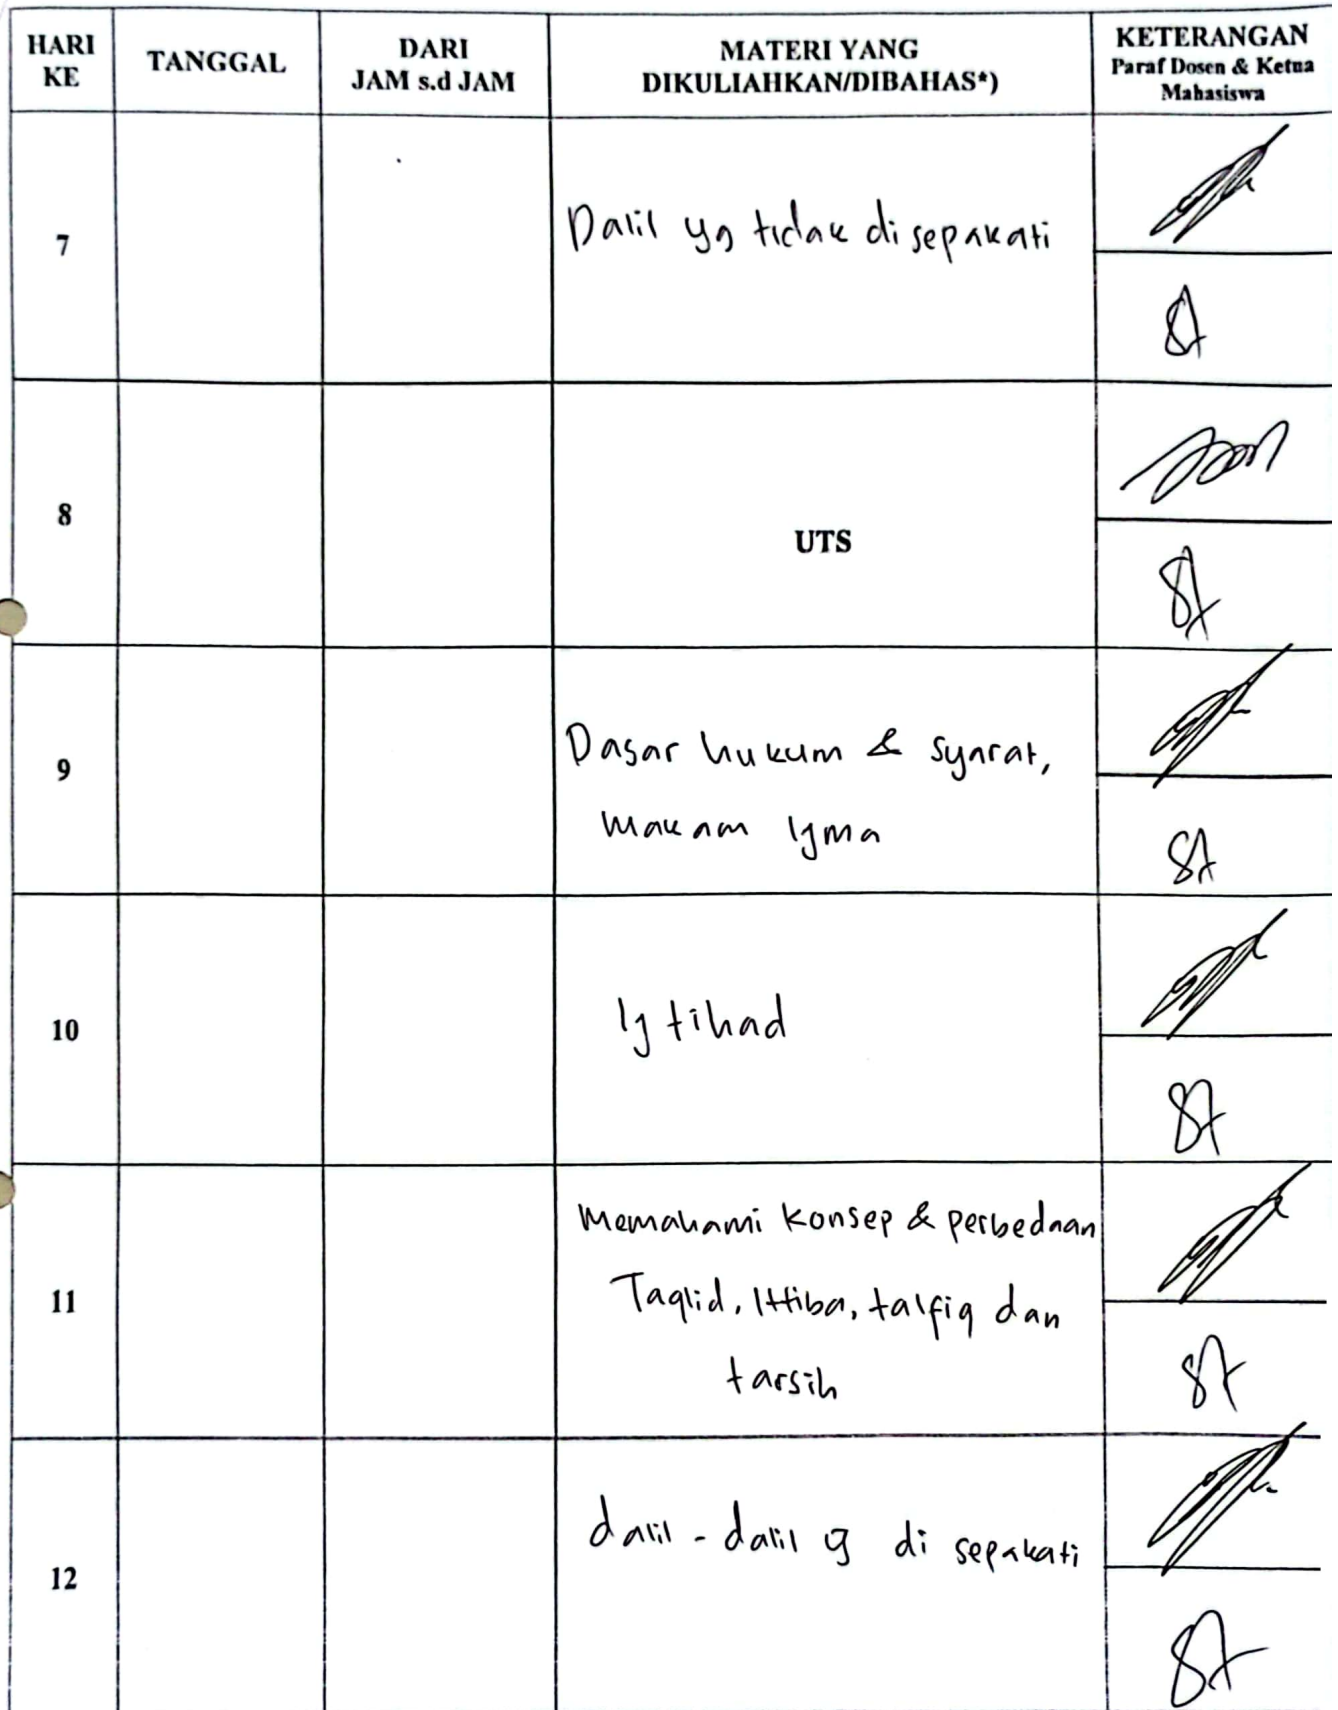 HARI KE
TANGGAL
DARI
JAM s.d JAM
MATERI YANG
DIKULIAHKAN/DIBAHAS*)
KETERANGAN
Paraf Dosen & Ketua
Mahasiswa
7
Dalil yg tidak disepakati
8
UTS
9
Dasar hukum & syarat,
Makam Ijma
10
Ijtihad
11
Memahami konsep & perbedaan
Taqlid, Ittiba, talfiq dan
tarsih
12
dalil - dalil yg di sepakati